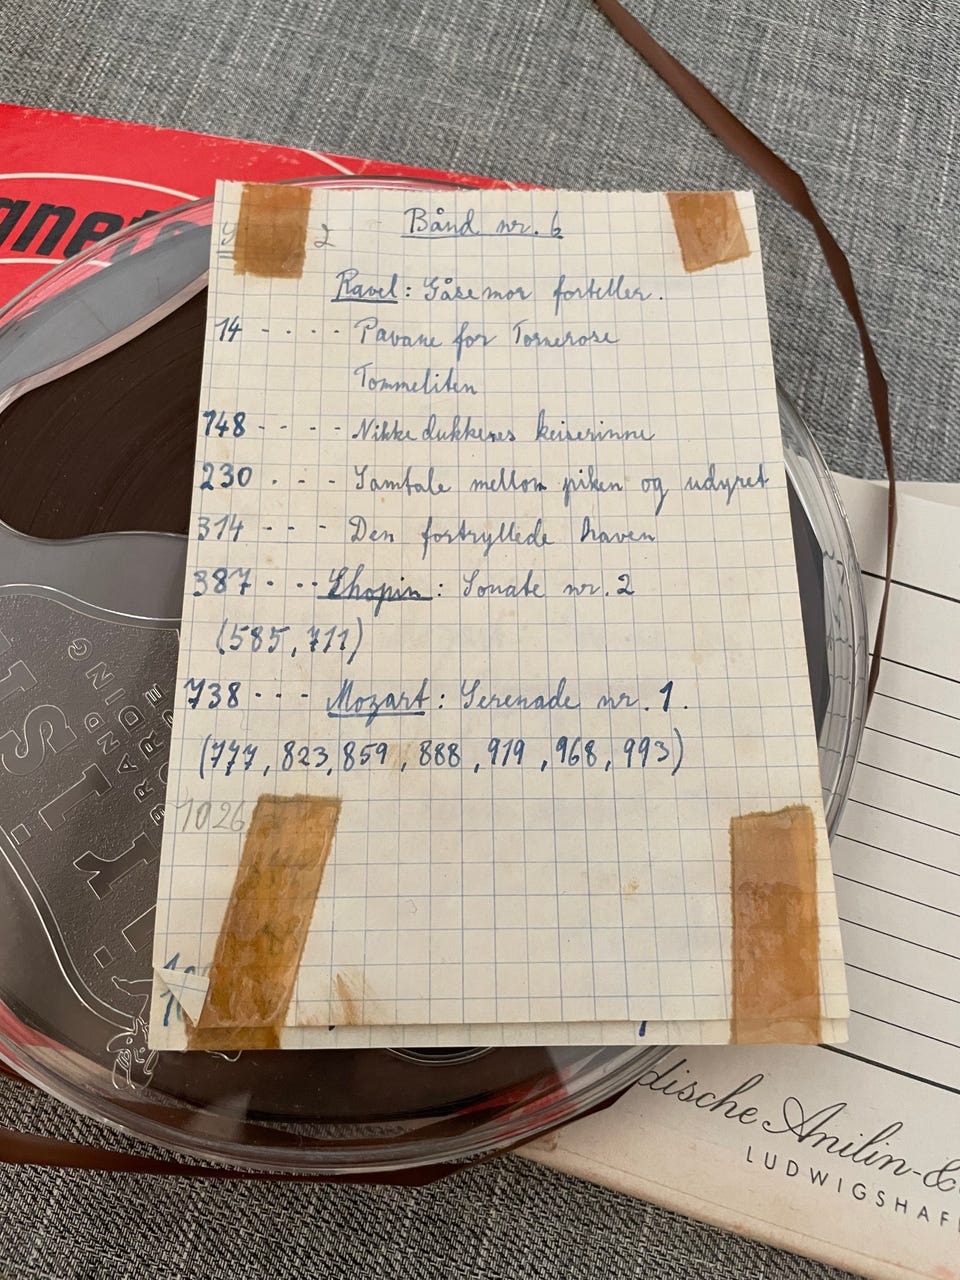 2 Bånd nr. 6
Ravel: Gåsemor forteller.
14 - - - - Pavane for Tornerose
Tommeliten
148 - - - - Nikkedukkenes keiserinne
230 - - - Samtale mellom piken og udyret
314 - - - Den fortryllede haven
387 - - - Chopin: Sonate nr. 2
(585, 711)
738 - - - Mozart: Serenade nr. 1.
(777, 823, 859, 888, 919, 968, 993)
1026
dische Anilin- &
LUDWIGSHAF